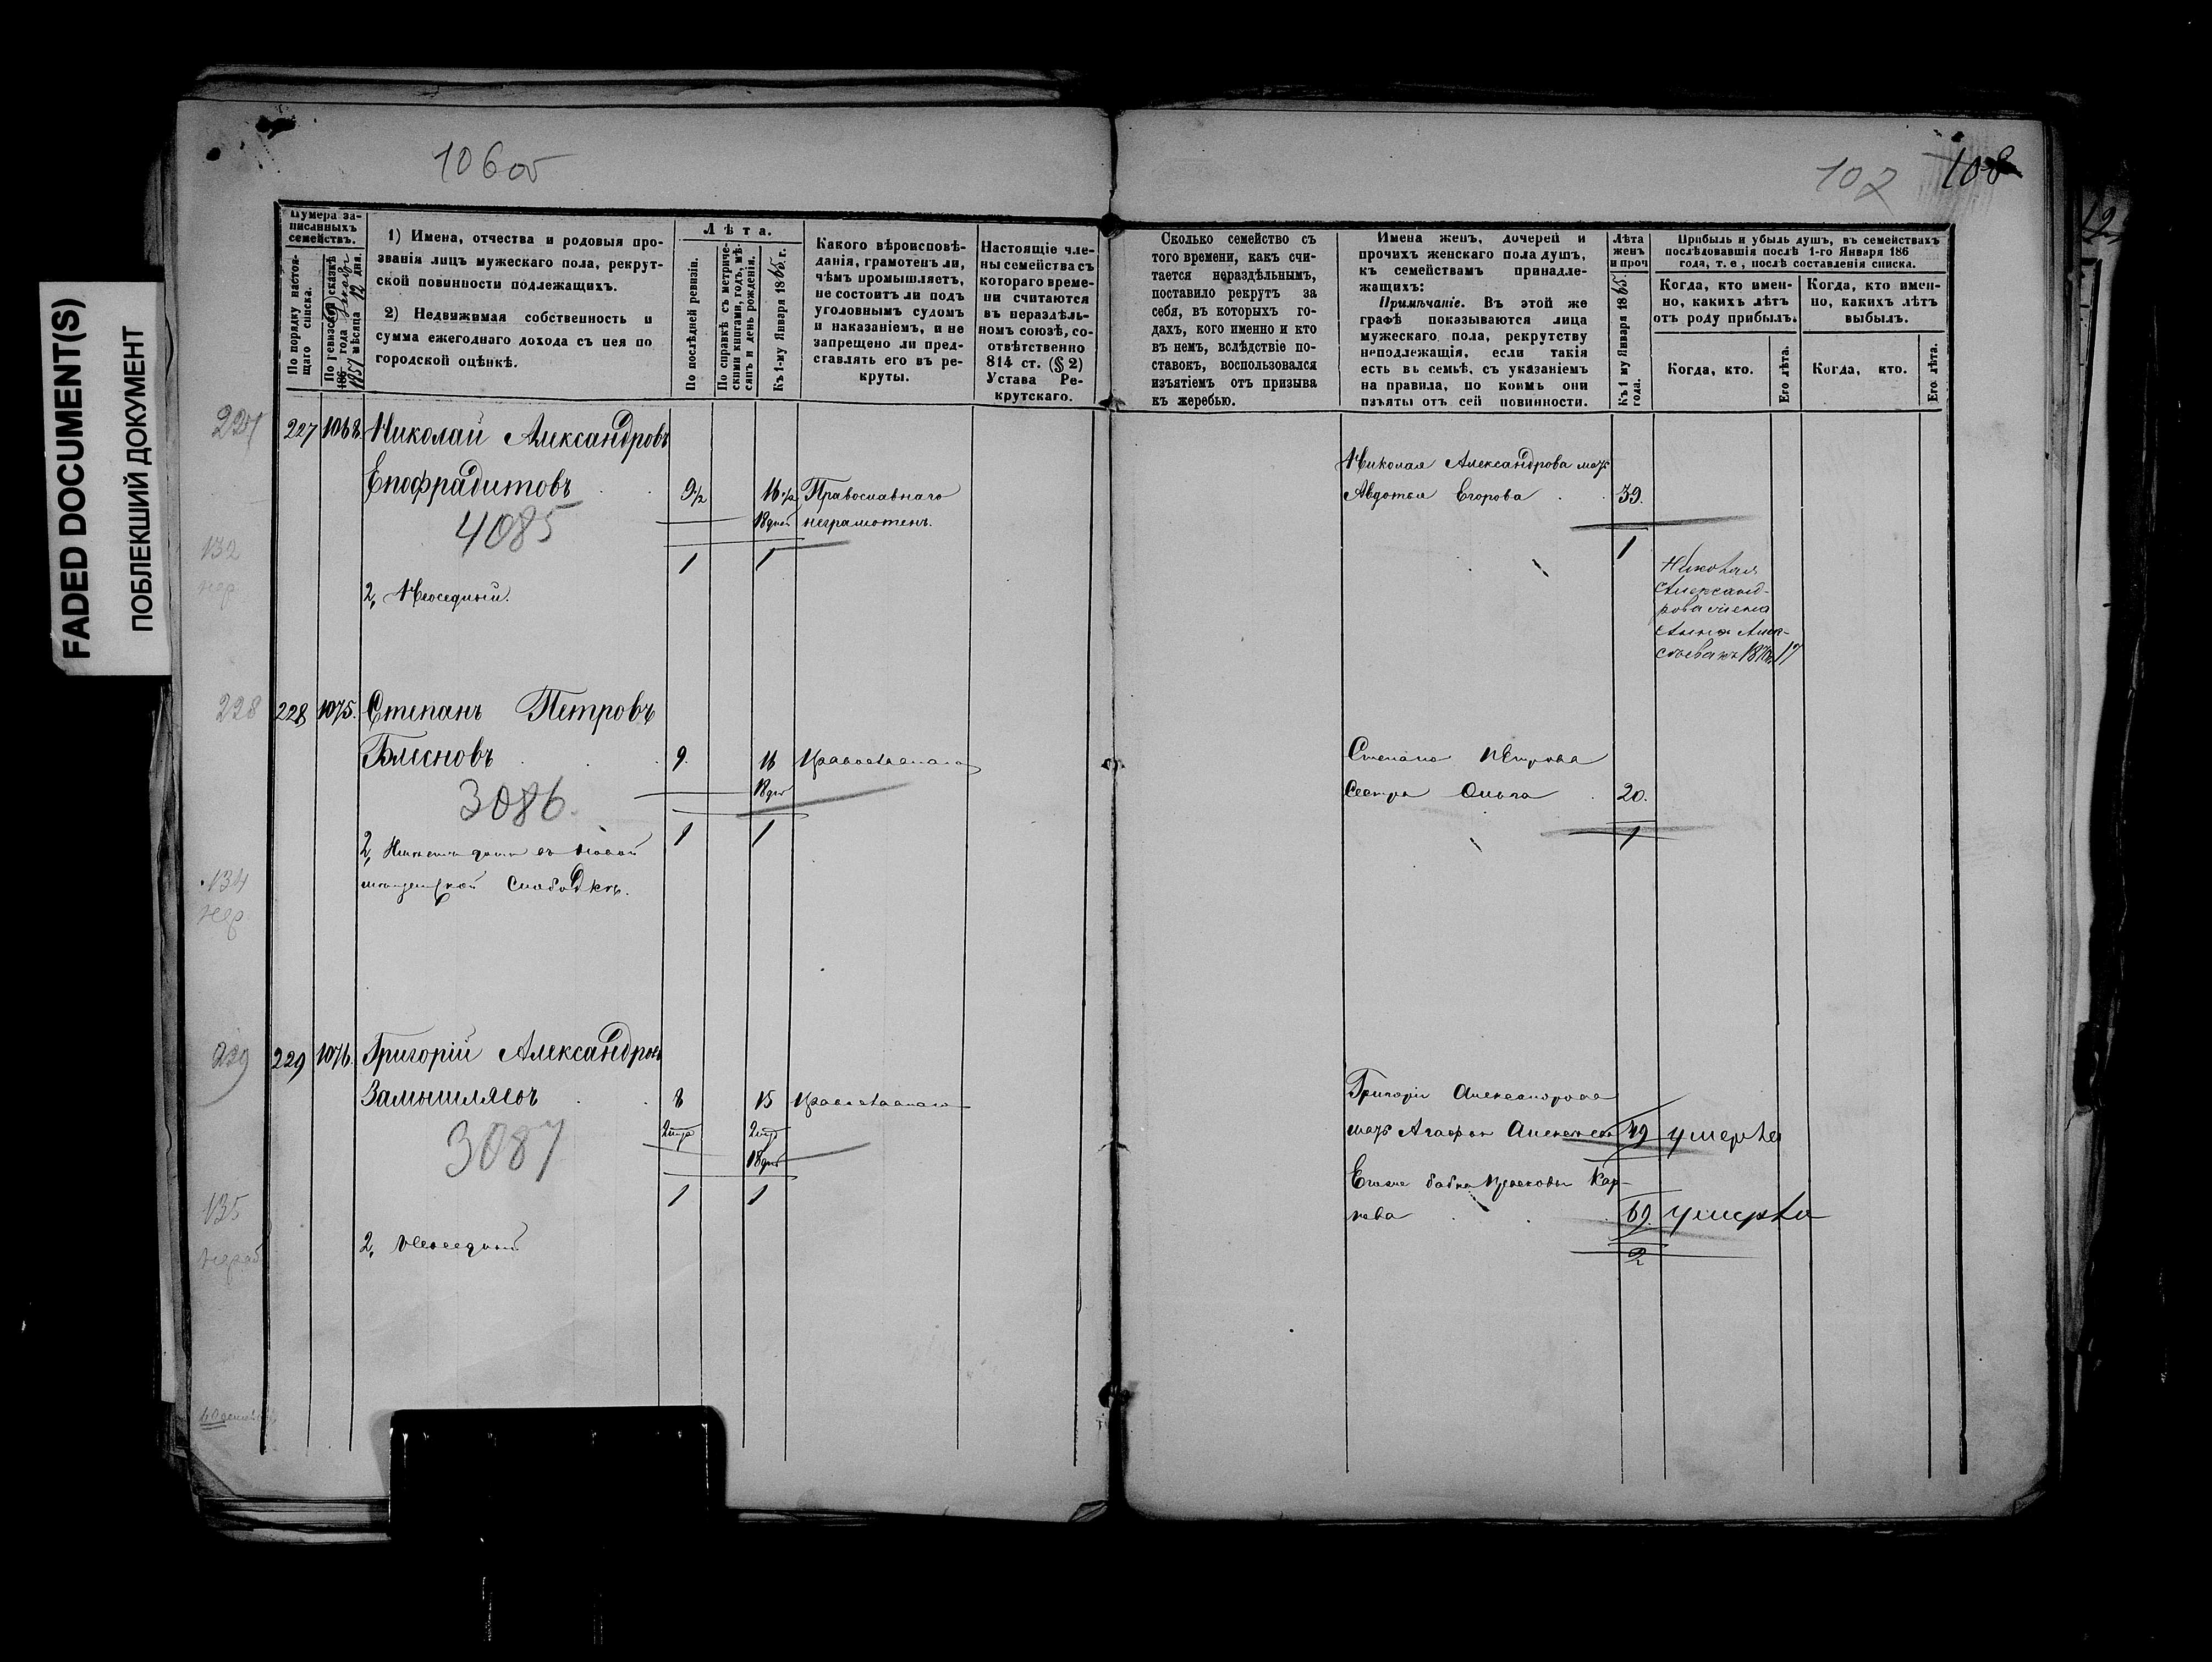 FADED DOCUMENT(S)
ПОБЛЕКШИЙ ДОКУМЕНТ
106об
Нумера за-
писанныхъ
семействъ.
По порядку настоя-
щаго списка.
По ревизской сказкѣ
186 года
1857 мѣсяца 12 дня.
1) Имена, отчества и родовыя про-
званія лицъ мужескаго пола, рекрут-
ской повинности подлежащихъ.
2) Недвижимая собственность и
сумма ежегоднаго дохода съ нея по
городской оцѣнкѣ.
Лѣта.
По послѣдней ревизіи.
По справкѣ съ метриче-
скими книгами, годъ, мѣ-
сяцъ и день рожденія.
Къ 1-му Января 1865 г.
Какого вѣроисповѣ-
данія, грамотенъ ли,
чѣмъ промышляетъ,
не состоитъ ли подъ
уголовнымъ судомъ
и наказаніемъ, и не
запрещено ли пред-
ставлять его въ ре-
круты.
Настоящіе чле-
ны семейства съ
котораго време-
ни считаются
въ нераздѣль-
номъ союзѣ, со-
отвѣтственно
814 ст. (§ 2)
Устава Ре-
крутскаго.
227 227 1068 Николай Александровъ
Епофрадитовъ 9½ 16½ Православнаго
18 дней неграмотенъ.
4085
1 1
132
нер
2, Неоседлый.
228 228 1075. Степанъ Петровъ
Блесновъ 9. 16 Православнаго
18 дн
3086.
1 1
2, Имѣетъ домъ въ Новой
Слободкѣ.
134
нер
229 229 1076. Григорій Александровъ
8 15 Православнаго
2 мца 2 мца
18 дн
3087
1 1
135
нераб
2, Неоседлый
102 108
Сколько семейство съ
того времени, какъ счи-
тается нераздѣльнымъ,
поставило рекрутъ за
себя, въ которыхъ го-
дахъ, кого именно и кто
въ немъ, вслѣдствіе по-
ставокъ, воспользовался
изъятіемъ отъ призыва
къ жеребью.
Имена женъ, дочерей и
прочихъ женскаго пола душъ,
къ семействамъ принадле-
жащихъ:
Примѣчаніе. Въ этой же
графѣ показываются лица
мужескаго пола, рекрутству
неподлежащія, если такія
есть въ семьѣ, съ указаніемъ
на правила, по коимъ они
изъяты отъ сей повинности.
Лѣта
женъ
и проч
Къ 1 му Января 1865
года.
Прибыль и убыль душъ, въ семействахъ
послѣдовавшія послѣ 1-го Января 186
года, т. е, послѣ составленія списка.
Когда, кто имен-
но, какихъ лѣтъ
отъ роду прибылъ.
Когда, кто имен-
но, какихъ лѣтъ
выбылъ.
Когда, кто.
Его лѣта.
Когда, кто.
Его лѣта.
Николая Александрова мать
Авдотья Егорова 39.
1
Николая
Александ-
рова жена
Анна Алек-
сѣева 17
Степана Петрова
Сестра Ольга 20.
1
Григорія Александрова
мать Агафья 49 умерла
Его бабка Прасковья Кар-
пова 69. умерла
2